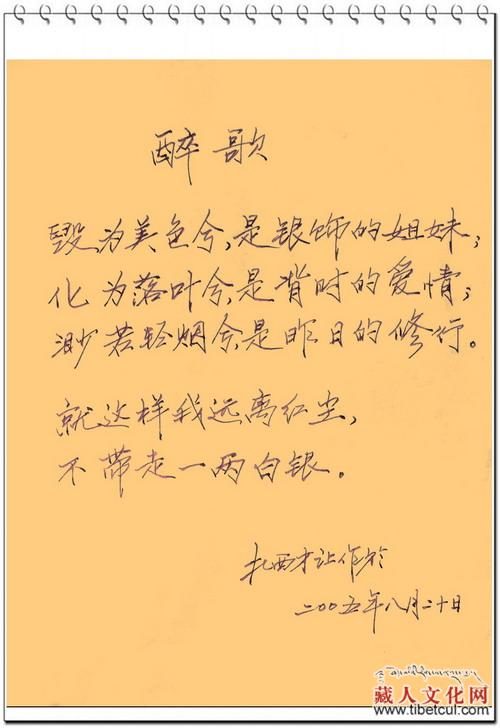 醉歌
毁,为美色兮,是银饰的姐妹;
化为落叶兮,是背时的爱情;
渺若轻烟兮,是昨日的修行。
就这样我远离红尘,
不带走一两白银。
扎西才让作于
二〇〇五年八月二十日
藏人文化网
www.tibetcul.com